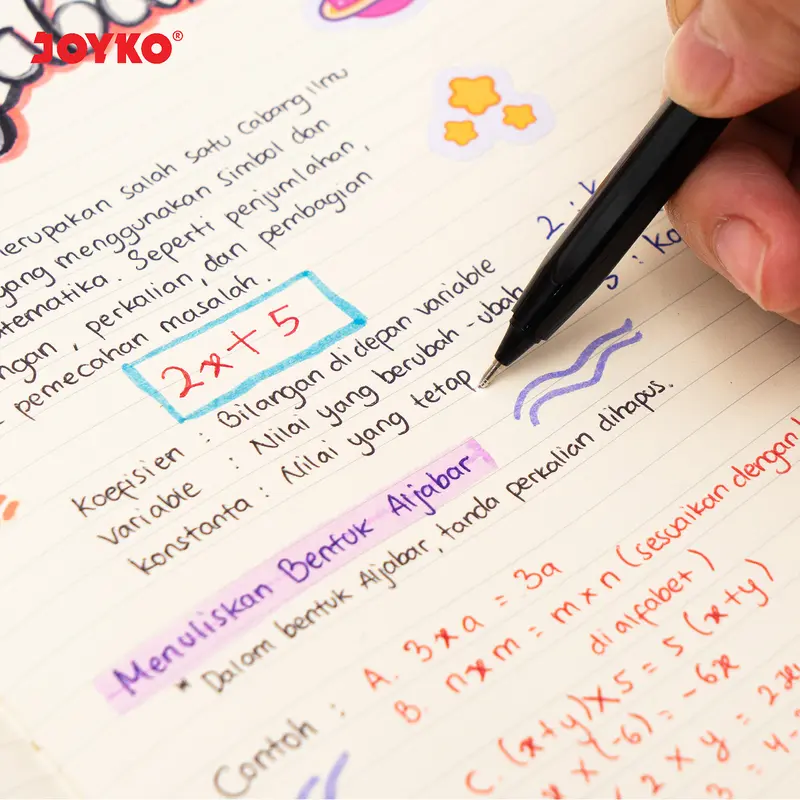 JOYKO®
merupakan salah satu cabang ilmu
yang menggunakan simbol dan
matematika. Seperti penjumlahan,
perkalian, dan pembagian
pemecahan masalah.
2x + 5
2 :
5 :
Koefisien : Bilangan di depan variable
Variable : Nilai yang berubah-ubah
konstanta : Nilai yang tetap
Menuliskan Bentuk Aljabar
* Dalam bentuk Aljabar, tanda perkalian dihapus.
Contoh : A. 3 x a = 3a
B. n x m = m x n (sesuaikan dengan
di alfabet)
C. (x+y) x 5 = 5 (x+y)
x x (-6) = -6x
2 x y =
3 = 4